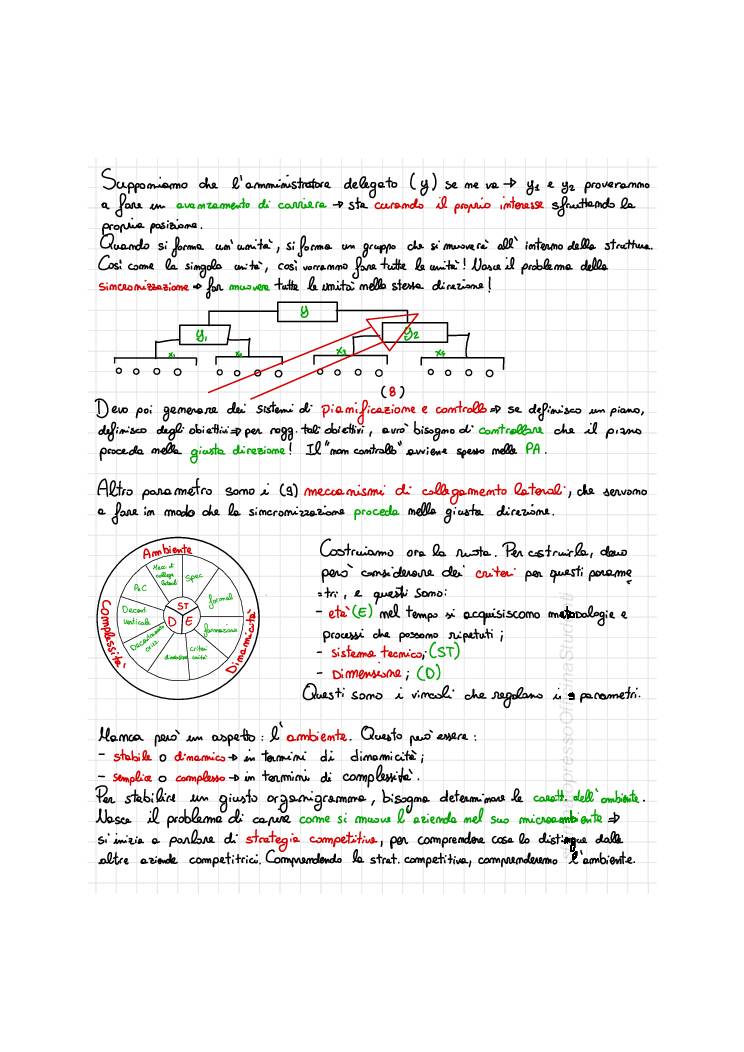 Supponiamo che l'amministratore delegato (y) se ne va → y1 e y2 proveranno
a fare un avanzamento di carriera → sta curando il proprio interesse sfruttando la
propria posizione.
Quando si forma un'unità, si forma un gruppo che si muoverà all'interno della struttura.
Così come la singola unità, così vorranno fare tutte le unità! Nasce il problema della
sincronizzazione → far muovere tutte le unità nella stessa direzione!
y
y1
y2
x1 x2 x3 x4
(8)
Devo poi generare dei sistemi di pianificazione e controllo ⇒ se definisco un piano,
definisco degli obiettivi ⇒ per ragg. tali obiettivi, avrò bisogno di controllare che il piano
proceda nella giusta direzione! Il "non controllo" avviene spesso nella PA.
Altro parametro sono i (9) meccanismi di collegamento laterali, che servono
a fare in modo che la sincronizzazione proceda nella giusta direzione.
Ambiente
Complessità
Dinamicità
Mecc. di
colleg.
laterali
Spec
formal
formazione
criteri
unità
dimensione
Decentramento
orizz.
Decent.
verticale
P&C
ST
D E
Costruiamo ora la ruota. Per costruirla, devo
però considerare dei criteri per questi parame
=tri, e questi sono:
- età (E) nel tempo si acquisiscono metodologie e
processi che possono ripetuti;
- sistema tecnico; (ST)
- Dimensione; (D)
Questi sono i vincoli che regolano i 9 parametri.
Manca però un aspetto: l'ambiente. Questo può essere:
- stabile o dinamico → in termini di dinamicità;
- semplice o complesso → in termini di complessità.
Per stabilire un giusto organigramma, bisogna determinare le caratt. dell'ambiente.
Nasce il problema di capire come si muove l'azienda nel suo microambiente ⇒
si inizia a parlare di strategia competitiva, per comprendere cosa lo distingue dalle
altre aziende competitrici. Comprendendo la strat. competitiva, comprenderemo l'ambiente.